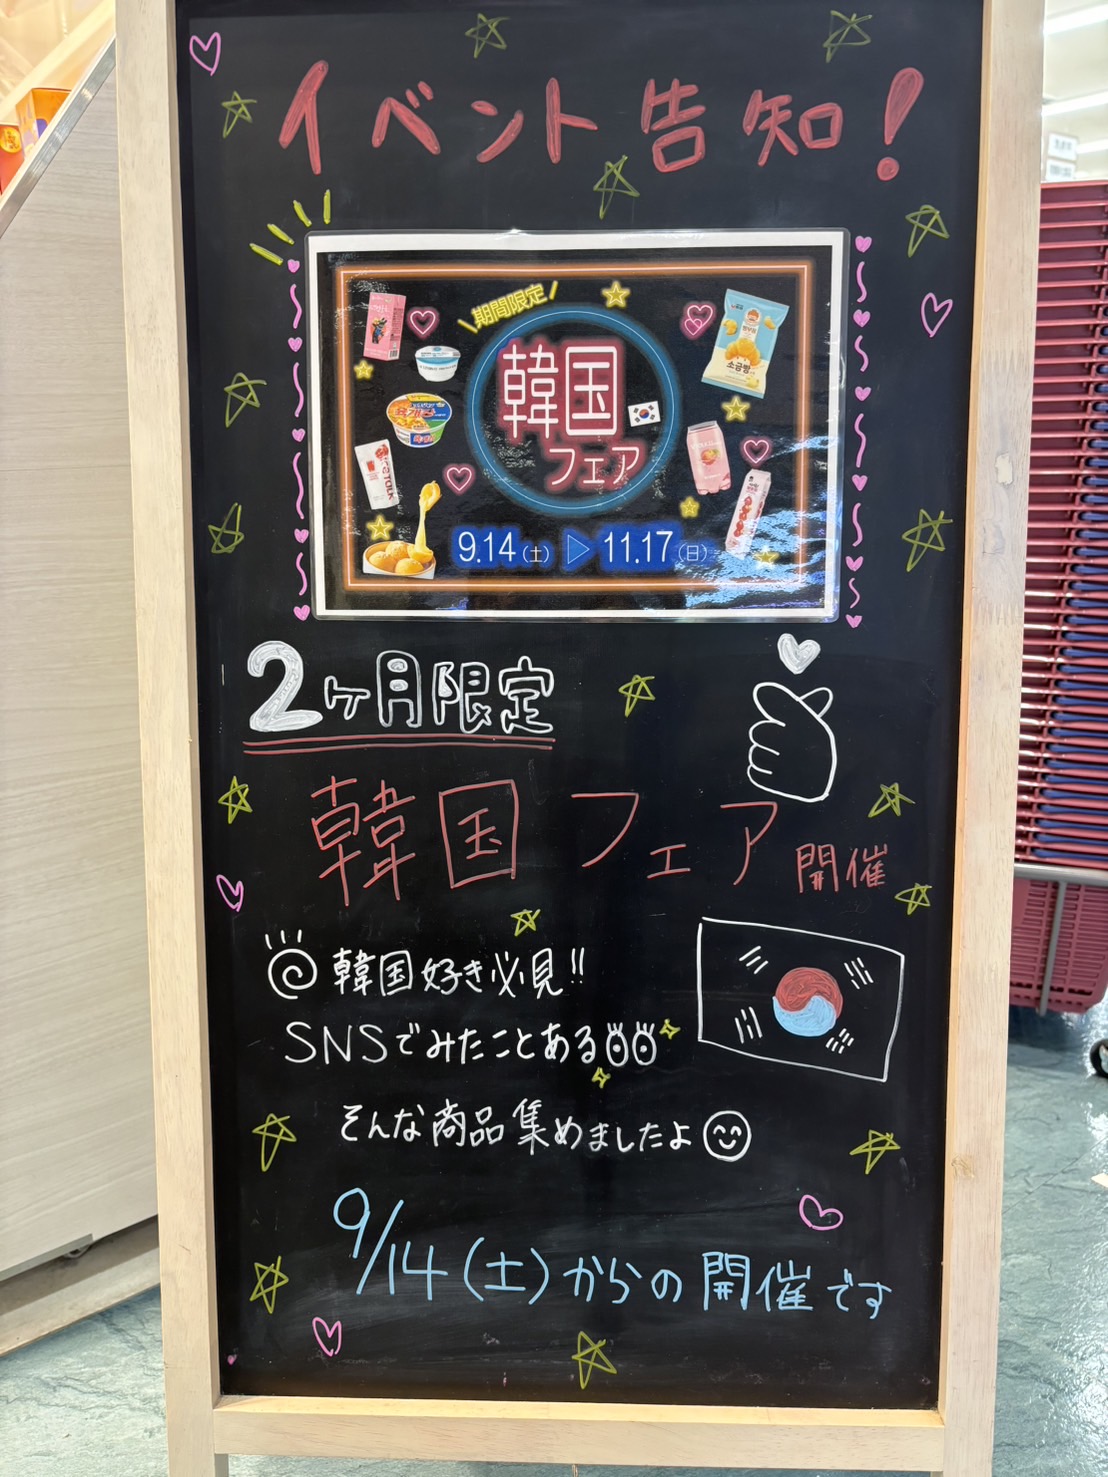 イベント告知!
期間限定
韓国
フェア
소금빵
9.14(土)▷11.17(日)
2ヶ月限定
韓国フェア開催
韓国好き必見!!
SNSでみたことある
そんな商品集めましたよ
9/14(土)からの開催です